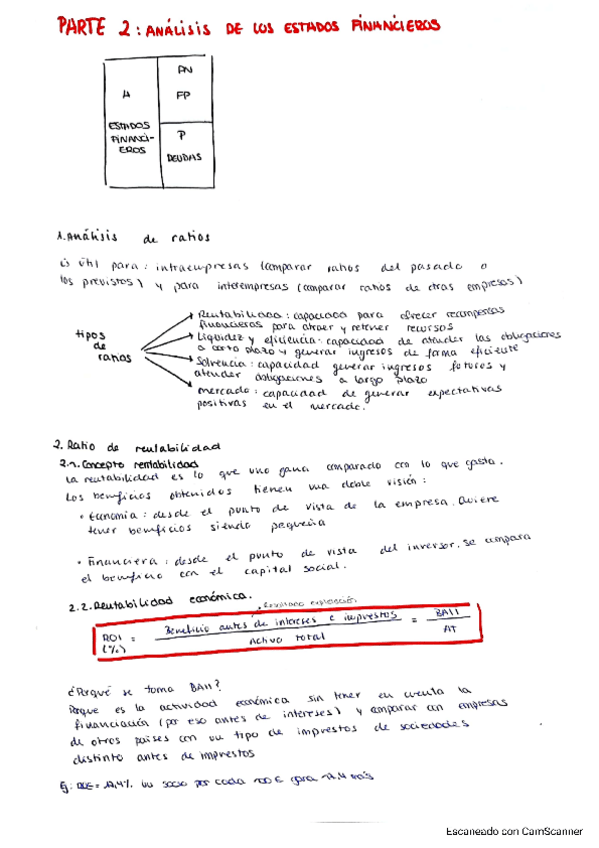 PARTE 2: ANÁLISIS DE LOS ESTADOS FINANCIEROS
A
ESTADOS
FINANCI-
EROS
PN
FP
P
DEUDAS
1. Análisis de ratios
Es útil para: intraempresas (comparar ratios del pasado o
los previstos) y para interempresas (comparar ratios de otras empresas)
tipos
de
ratios
Rentabilidad: capacidad para ofrecer recompensas
financieras para atraer y retener recursos
Liquidez y eficiencia: capacidad de atender las obligaciones
a corto plazo y generar ingresos de forma eficiente
Solvencia: capacidad generar ingresos futuros y
atender obligaciones a largo plazo
mercado: capacidad de generar expectativas
positivas en el mercado.
2. Ratio de rentabilidad
2.1. Concepto rentabilidad
La rentabilidad es lo que uno gana comparado con lo que gasta.
Los beneficios obtenidos tienen una doble visión:
• Economía: desde el punto de vista de la empresa. Quiere
tener beneficios siendo pequeña
• Financiera: desde el punto de vista del inversor. Se compara
el beneficio con el capital social.
2.2. Rentabilidad económica.
Resultado explotación
ROI (%) = Beneficio antes de intereses e impuestos / Activo total = BAII / AT
¿Porqué se toma BAII?
Porque es la actividad económica sin tener en cuenta la
financiación (por eso antes de intereses) y comparar con empresas
de otros países con un tipo de impuestos de sociedades
distinto antes de impuestos
Un socio por cada 100 € gana más